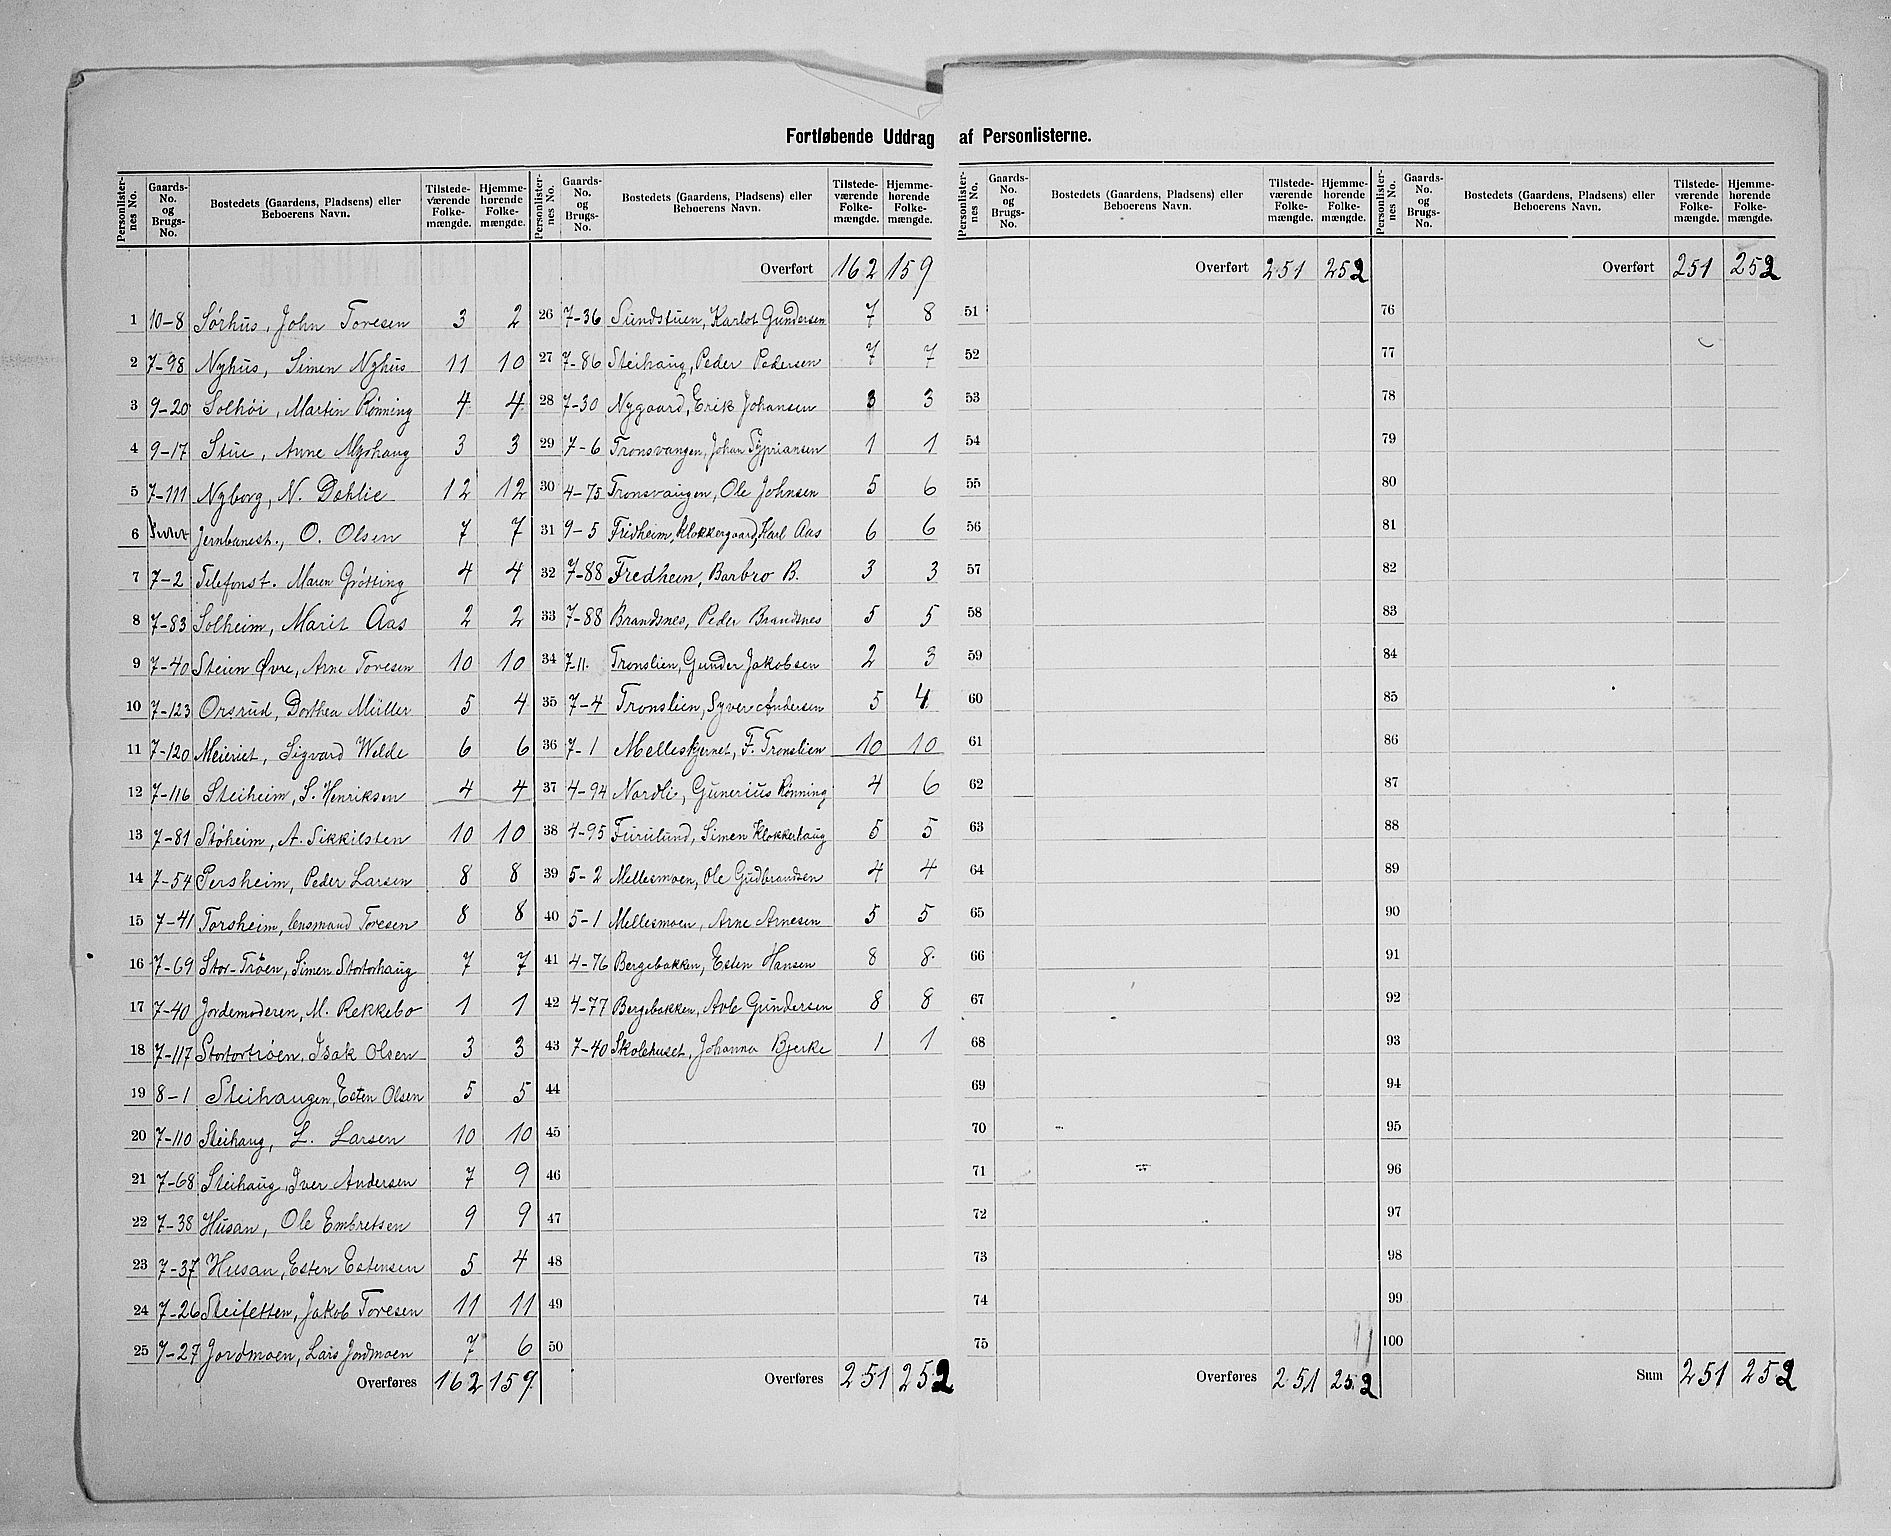 Fortløbende Uddrag af Personlisterne.
Personlister-nes No. Gaards-No. og Brugs-No. Bostedets (Gaardens, Pladsens) eller Beboerens Navn. Tilstede-værende Folke-mængde. Hjemme-hørende Folke-mængde.
1 10-8 Sørhus, John Toresen 3 2
2 7-98 Nyhus, Simen Nyhus 11 10
3 9-20 Solhøi, Martin Rønning 4 4
4 9-17 Stue, Anne 3 3
5 7-111 Nyborg, N. Dahlie 12 12
6 Jernbanest., O. Olsen 7 7
7 7-2 Telefonst. Maren Grøtting 4 4
8 7-83 Solheim, Marit Aas 2 2
9 7-40 Steien Øvre, Arne Toresen 10 10
10 7-123 Orsrud, Dorthea Müller 5 4
11 7-120 Meieriet, Sigvard Welde 6 6
12 7-116 Steiheim, S. Henriksen 4 4
13 7-81 Støheim, A. Sikkilsten 10 10
14 7-54 Persheim, Peder Larsen 8 8
15 7-41 Torsheim, lensmand Toresen 8 8
16 7-69 Stor-Trøen, Simen Stortorhaug 7 7
17 7-40 Jordemoderen, M. Rekkebo 1 1
18 7-117 Stortortrøen, Isak Olsen 3 3
19 8-1 Steihaugen, Esten Olsen 5 5
20 7-110 Steihaug, L. Larsen 10 10
21 7-68 Steihaug, Iver Andersen 7 9
22 7-38 Husan, Ole Embretsen 9 9
23 7-37 Husan, Esten Estensen 5 4
24 7-26 Steifetten, Jakob Toresen 11 11
25 7-27 Jordmoen, Lars Jordmoen 7 6
Overføres 162 159
Personlister-nes No. Gaards-No. og Brugs-No. Bostedets (Gaardens, Pladsens) eller Beboerens Navn. Tilstede-værende Folke-mængde. Hjemme-hørende Folke-mængde.
Overført 162 159
26 7-36 Sundstuen, Karlot Gundersen 7 8
27 7-86 Steihaug, Peder Pedersen 7 7
28 7-30 Nygaard, Erik Johansen 3 3
29 7-6 Tronsvangen, Johan Sypriansen 1 1
30 4-75 Tronsvangen, Ole Johnsen 5 6
31 9-5 Fridheim, Klokkergaard, Karl Aas 6 6
32 7-88 Fredheim, Barbro B. 3 3
33 7-88 Brandsnes, Peder Brandsnes 5 5
34 7-11. Tronslien, Gunder Jakobsen 2 3
35 7-4 Tronslien, Syver Andersen 5 4
36 7-1 Melleskjernet, F. Tronslien 10 10
37 4-94 Nordli, Gunerius Rønning 4 6
38 4-95 Furulund, Simen Klokkerhaug 5 5
39 5-2 Mellesmoen, Ole Gudbrandsen 4 4
40 5-1 Mellesmoen, Arne Arnesen 5 5
41 4-76 Bergebakken, Esten Hansen 8 8.
42 4-77 Bergebakken, Gundersen 8 8
43 7-40 Skolehuset, Johanna Bjerke 1 1
44
45
46
47
48
49
50
Overføres 251 252
Personlister-nes No. Gaards-No. og Brugs-No. Bostedets (Gaardens, Pladsens) eller Beboerens Navn. Tilstede-værende Folke-mængde. Hjemme-hørende Folke-mængde.
Overført 251 252
51
52
53
54
55
56
57
58
59
60
61
62
63
64
65
66
67
68
69
70
71
72
73
74
75
Overføres 251 252
Personlister-nes No. Gaards-No. og Brugs-No. Bostedets (Gaardens, Pladsens) eller Beboerens Navn. Tilstede-værende Folke-mængde. Hjemme-hørende Folke-mængde.
Overført 251 252
76
77
78
79
80
81
82
83
84
85
86
87
88
89
90
91
92
93
94
95
96
97
98
99
100
Sum 251 252